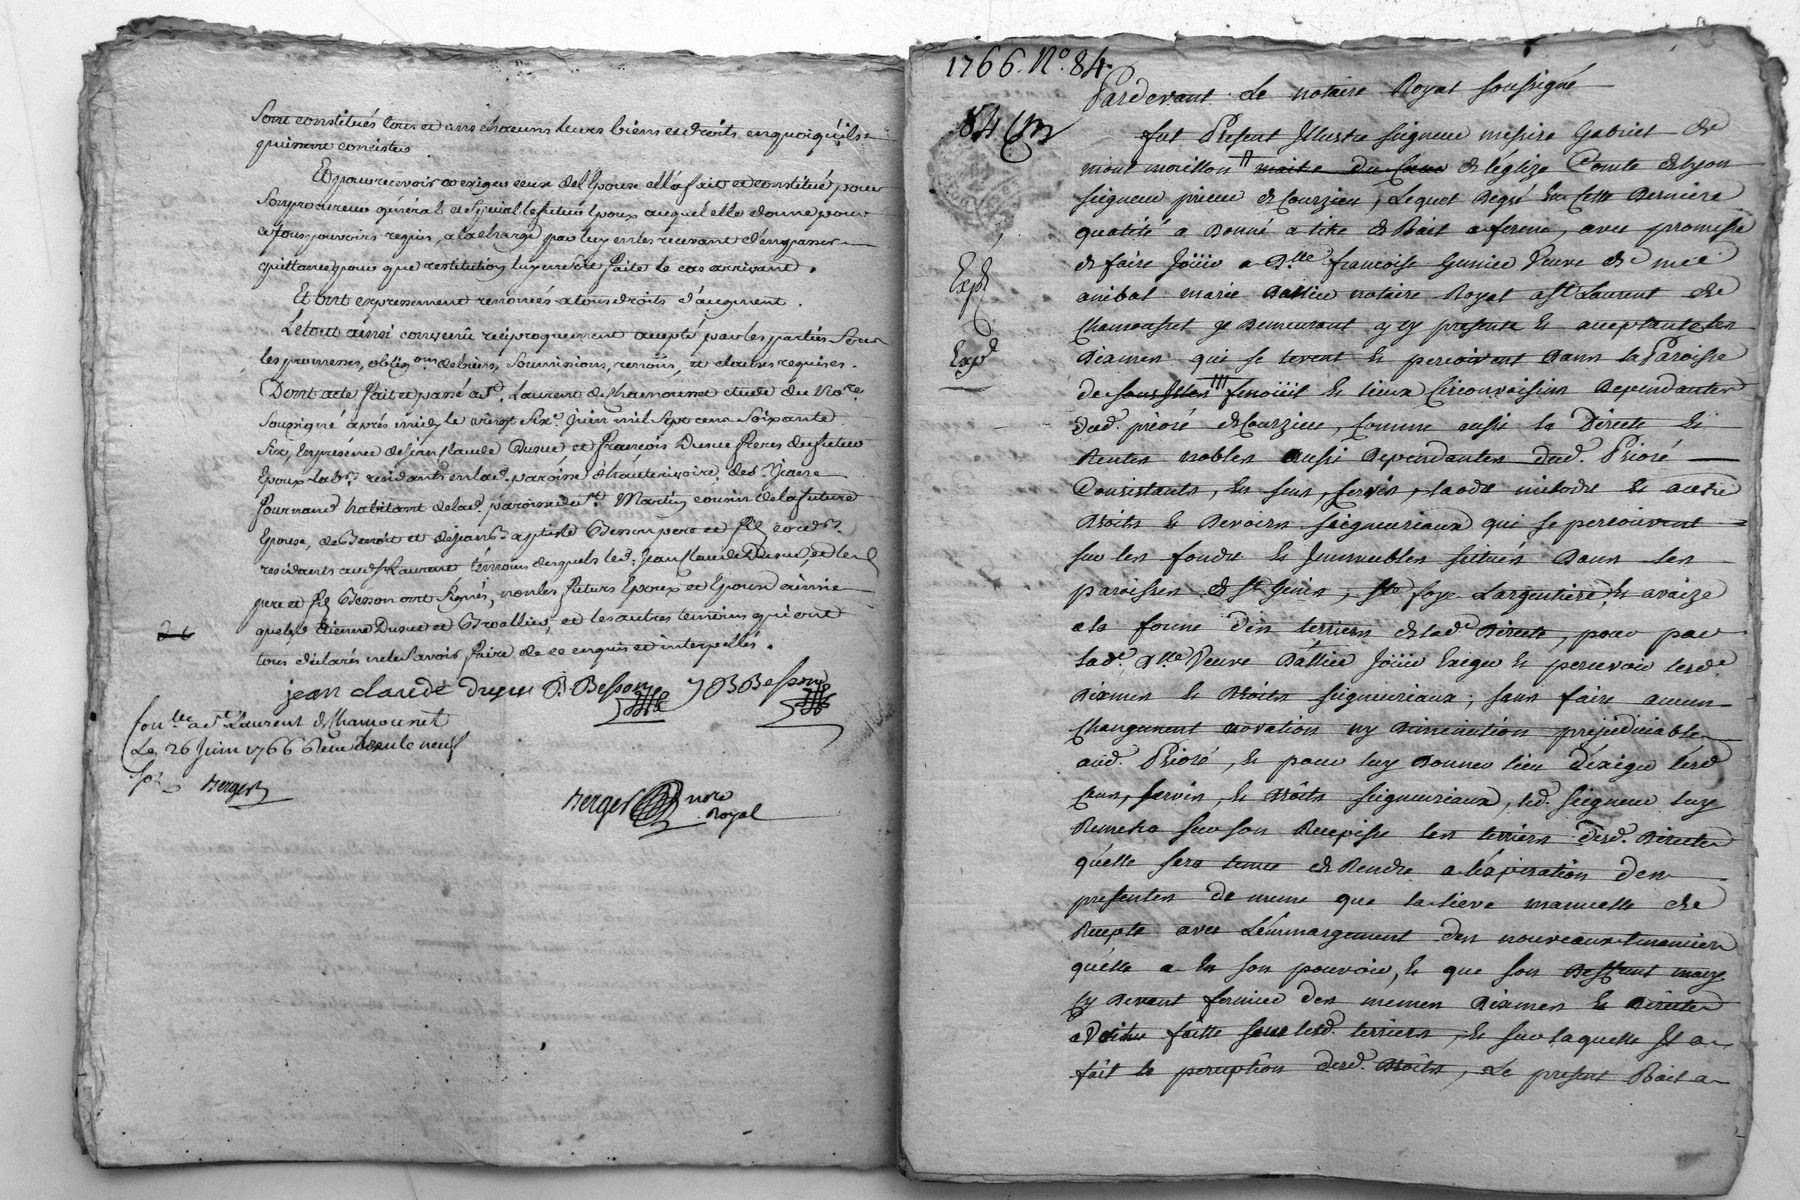 Sont constitués tous et uns chacuns leurs biens et droits en quoi qu'ils
puissent consister.
Et pour recevoir et exiger ceux de l'Epouse elle a fait et constitué pour
son procureur général et spécial led. futur Epoux auquel elle donne pour
ce tous pouvoirs requis, a la charge par luy en les recevant d'en passer
quittances pour que restitution luy en soit faite le cas arrivant.
Et ont expressement renoncés a tous droits d'augment.
Le tout ainsi convenû réciproquement accepté par les parties sous
les promesses, oblig.ons de biens, soumissions, renons. et clauses requises.
Dont acte fait et passé a St. Laurent de Chamousset etude du No.re
soussigné après midy le vingt six.e juin mil sept cent soixante
six, en présence de jean Claude Dupuis et françois Dupuis freres du futur
Epoux lab.rs residants en lad. paroisse d'hauterivoire, de Sr.
habitant de lad. paroisse de St. Martin cousin de la future
Epouse, de Benoit et de jean Baptiste Besson pere et fils
residants aud. St Laurent témoins desquels led. Jean Claude Dupuis, et les
pere et fils Besson ont signés, non les futurs Epoux et Epouse
Etienne Dupuis et et les autres temoins qui ont
tous déclarés ne le savoir faire de ce enquis et interpellés.
jean claude dupuis B. Besson J B Besson
Con.lle a St Laurent de Chamousset
Le 26 Juin 1766 Reçu
Berger
Berger nore
Royal
1766. No. 84.
84
Pardevant Le notaire Royal soussigné
fut Présent Illustre seigneur messire Gabriel de
montmorillon de l'églize Comte de lyon
seigneur prieur de Courzieu, Lequel Degré En Cette Derniere
qualité a Donné a titre de Bail a ferme, avec promesse
de faire Joüir a D.lle francoise Gunier Veuve de me
Expd
anibal marie Dallier notaire Royal a St Laurent de
Chamousset y Demeurant cy presente et acceptante les
Expd
Dixmes qui se levent et percoivent Dans la Paroisse
de fenoüil et lieux Circonvoisins Dependantes
dud. prieoré de Courzieu, Comme aussi la Directe et
Rentes nobles aussi Dependantes dud. Prioré
Consistants, En Cens, servis, laods milods et autre
Droits et Devoirs seigneuriaux qui se percoivent
sur les fonds et Immeubles situés Dans les
paroisses de St Genis, Ste foye Largentiere, et avaize
a la forme des terriers de lad. Directe, pour par
lad.e D.lle Veuve Dallier Joüir Exiger et percevoir lesd.
Dixmes et Droits seigneuriaux; sans faire aucun
Changement novation ny Diminution prejudiciable
aud. Prioré, et pour luy Donner lieu d'éxiger lesd.
Cens, servis, et Droits seigneuriaux, led. seigneur luy
Remettra sur son Recepisse les terriers desd. Directes
qu'elle sera tenue de Rendre a l'éxpiration des
presentes de meme que la lieve manuelle de
Recepte avec L'émmargement des nouveaux tenanciers
qu'elle a En son pouvoir, et que son Deffunt mary
cy Devant fermier des memes Dixmes et Directes
a faitte sur lesd. terriers, et sur laquelle Il a
fait la perception desd. Droits, Le present Bail a